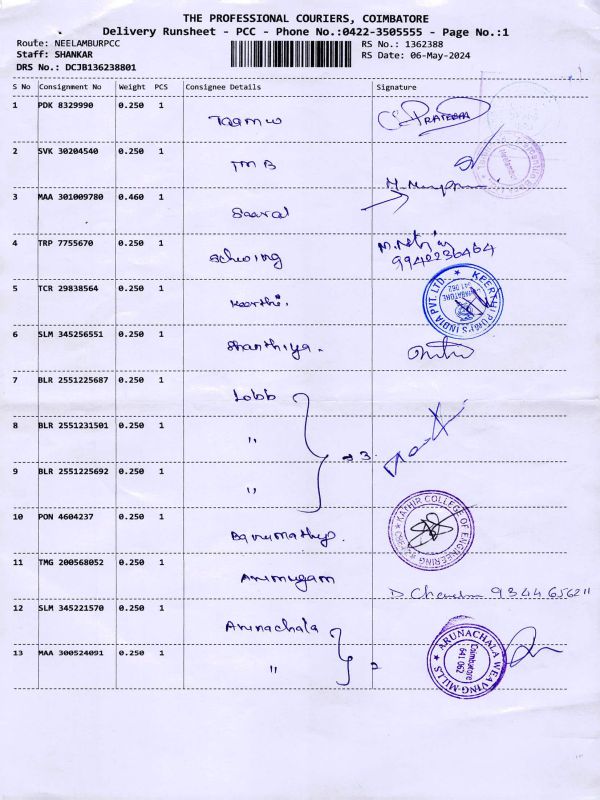 THE PROFESSIONAL COURIERS, COIMBATORE
Delivery Runsheet - PCC - Phone No.:0422-3505555 - Page No.:1
Route: NEELAMBURPCC
Staff: SHANKAR
DRS No.: DCJB136238801
RS No.: 1362388
RS Date: 06-May-2024
S No Consignment No Weight PCS Consignee Details Signature
1 PDK 8329990 0.250 1 PRATEEBHA
2 SVK 30204540 0.250 1 TMB
3 MAA 301009780 0.460 1 Saaral
4 TRP 7755670 0.250 1 Schwing 9942236464
5 TCR 29838564 0.250 1 Keerthi.
KEERTHI PUMPS INDIA PVT. LTD.
COIMBATORE
641 062
6 SLM 345256551 0.250 1 Shanthiya.
7 BLR 2551225687 0.250 1 Lobb
8 BLR 2551231501 0.250 1 "
3
9 BLR 2551225692 0.250 1 "
10 PON 4604237 0.250 1 Banumathy.
KATHIR COLLEGE OF ENGINEERING
11 TMG 200568052 0.250 1 Arumugam
12 SLM 345221570 0.250 1 Arunachala
13 MAA 300524091 0.250 1 " 2
ARUNACHALA WEAVING MILLS
Coimbatore
641 062